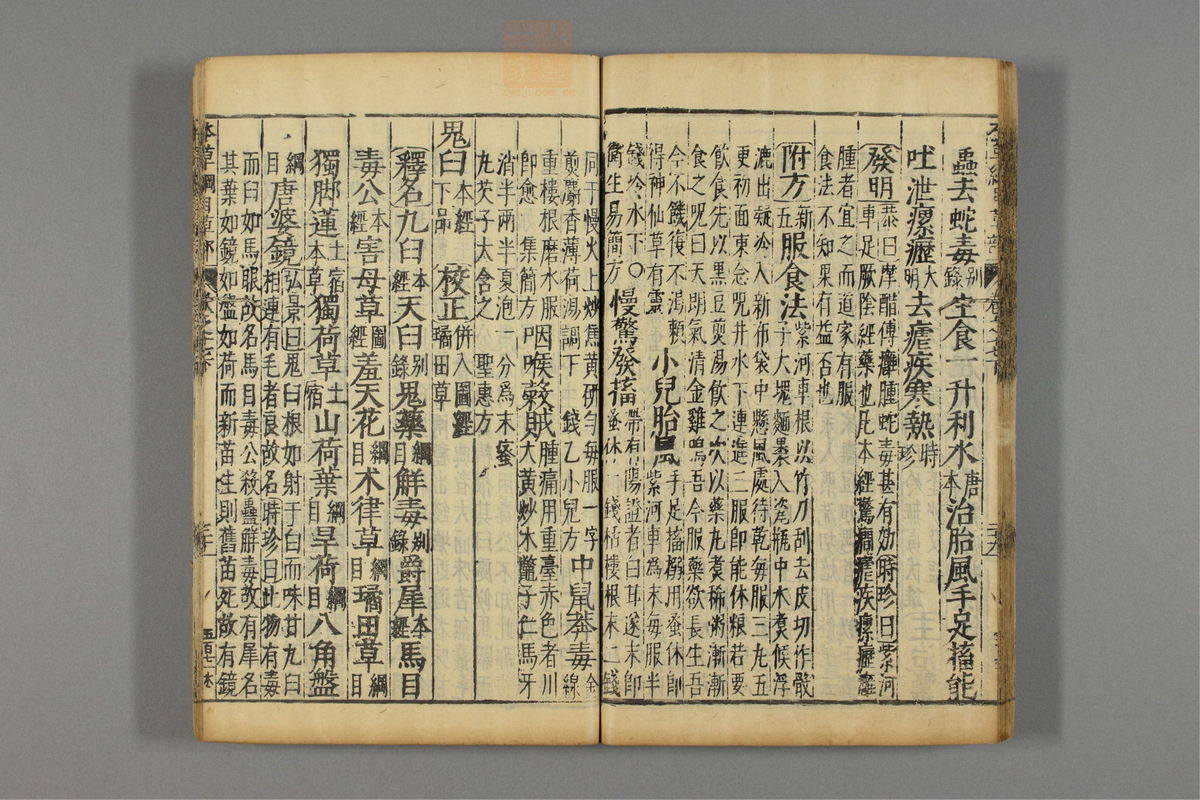 蟲去蛇毒 別錄 生食一升利水 唐本 治胎風手足搐能
吐泄瘰癧 大明 去瘧疾寒熱 時珍
發明 恭曰摩醋傅癰腫蛇毒甚有効時珍曰紫河
車足厥陰經藥也凡本經驚癇瘧疾瘰癧癰
腫者宜之而道家有服
食法不知果有益否也
附方 新五 服食法 紫河車根以竹刀刮去皮切作骰
子大塊麵裹入瓷瓶中水煮候浮
漉出凝冷入新布袋中懸風處待乾每服三丸五
更初面東念呪井水下連進三服即能休粮若要
飲食先以黑豆煎湯飲之次以藥丸煮稀粥漸漸
食之呪曰天朗氣清金雞鳴吾今服藥欲長生吾
今不饑復不渴賴
得神仙草有靈 小兒胎風 手足搐搦用蚤休即
紫河車爲末每服半
錢冷水下〇
衛生易簡方 慢驚發搐 帶有陽證者白甘遂末即
蚤休一錢栝樓根末二錢
本草綱目草部
同于慢火上炒焦黃研勻每服一字
煎麝香薄荷湯調下 錢乙小兒方 中鼠莽毒 金線
重樓根磨水服
即愈 集簡方 咽喉穀賊 腫痛用重臺赤色者川
大黃炒木鱉子仁馬牙
消半兩半夏泡一分爲末蜜
丸芡子大含之 聖惠方
鬼臼 本經下品 校正 併入圖經璚田草
釋名 九臼 本經 天臼 別錄 鬼藥 綱目 解毒 別錄 爵犀 本經 馬目
毒公 本經 害母草 圖經 羞天花 綱目 朮律草 綱目 璚田草 綱目
獨脚蓮 土宿本草 獨荷草 土宿 山荷葉 綱目 旱荷 綱目 八角盤
綱目 唐婆鏡 弘景曰鬼臼根如射干白而味甘九臼
相連有毛者良故名時珍曰此物有毒
而臼如馬眼故名馬目毒公殺蠱解毒故有犀名
其葉如鏡如盤如荷而新苗生則舊苗死故有鏡
本草綱目草部